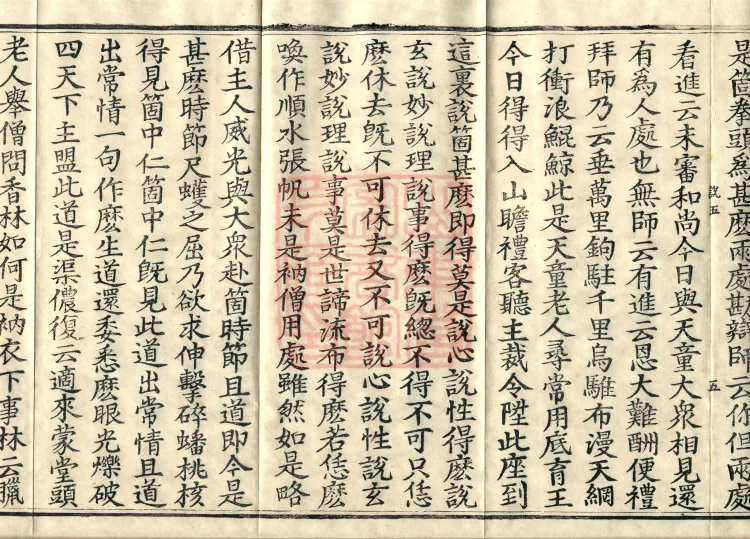 是箇拳頭爲甚麽兩處勘辯師云你但兩處
説五
五
看進云未審和尚今日與天童大衆相見還
有爲人處也無師云有進云恩大難酬便禮
拜師乃云垂萬里鉤駐千里烏騅布漫天網
打衝浪鯤鯨此是天童老人尋常用底育王
今日得得入山瞻禮客聽主裁令陞此座到
這裏説箇甚麽即得莫是説心説性得麽説
玄説妙説理説事得麽旣總不得不可只恁
麽休去旣不可休去又不可説心説性説玄
説妙説理説事莫是世諦流布得麽若恁麽
喚作順水張帆未是衲僧用處雖然如是略
借主人威光與大衆赴箇時節且道即今是
甚麽時節尺蠖之屈乃欲求伸擊碎蟠桃核
得見箇中仁箇中仁旣見此道出常情且道
出常情一句作麽生道還委悉麽眼光爍破
四天下主盟此道是渠儂復云適來蒙堂頭
老人舉僧問香林如何是衲衣下事林云臘